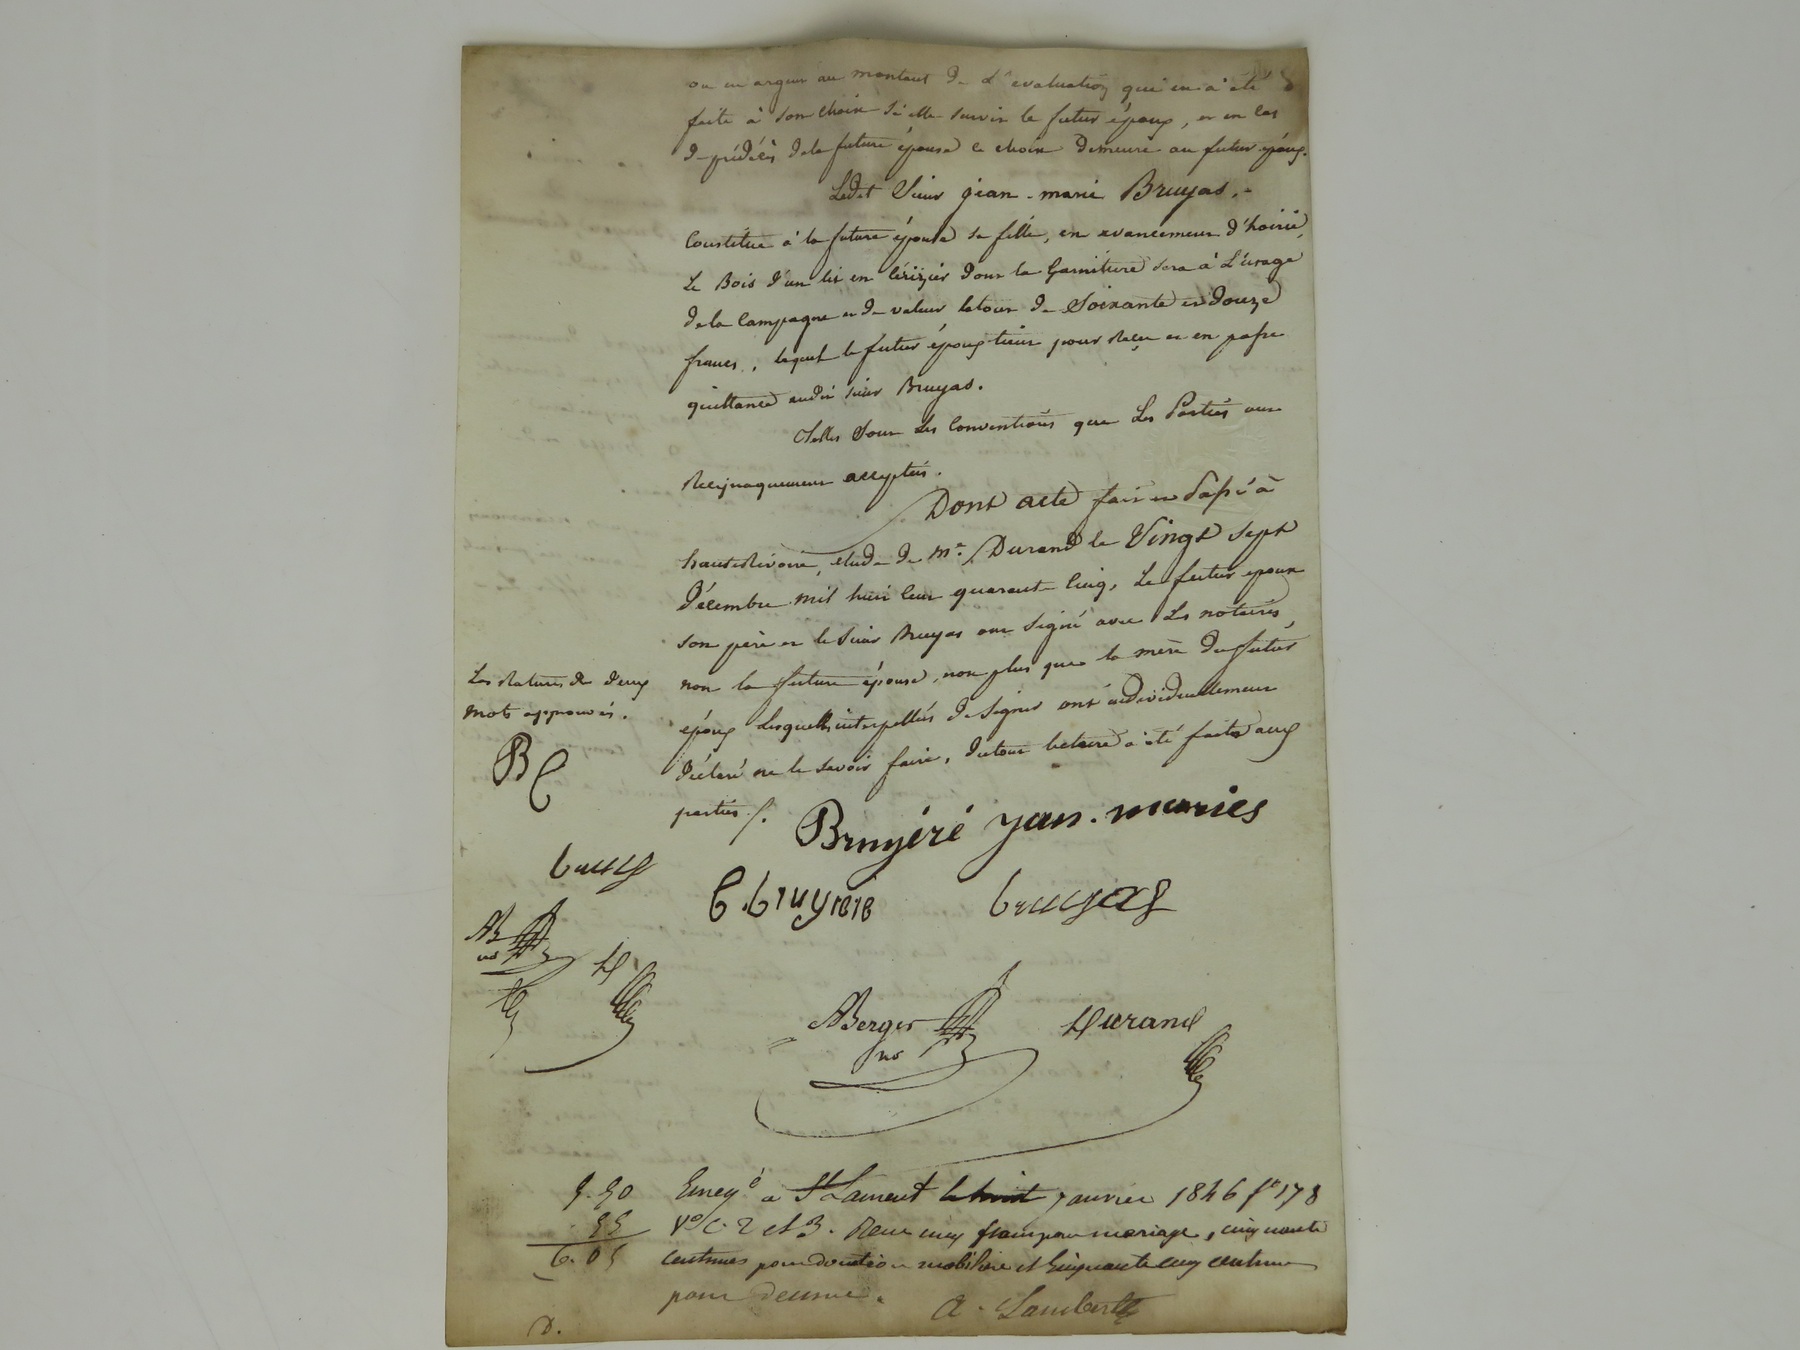 ou en argent au montant de l'évaluation qui en a été
faite à son choix si elle survit le futur époux, et en cas
de prédécès de la future épouse le choix demeure au futur époux.
Ledit Sieur jean-marie Bruyas,
Constitue à la future épouse sa fille, en avancement d'hoirie,
Le Bois d'un lit en cérizier dont la Garniture sera à L'usage
de la Campagne et de valeur le tout de Soixante et douze
francs, lequel le futur époux tient pour reçu et en passe
quittance audit sieur Bruyas.
Telles Sont les Conventions que Les Parties ont
Réciproquement acceptées.
Dont acte fait et Passé à
hauterivoire, étude de Me. Durand le Vingt Sept
décembre mil huit cent quarante cinq, Le futur epoux
son père et le Sieur Bruyas ont signé avec Les notaires,
non la future épouse, non plus que la mère du futur
époux lesquelles interpellées de signer ont individuellement
déclaré ne le savoir faire, du tout lecture a été faite aux
parties ./.
Les Ratures de deux
mots approuvés.
BC
Bruyéré jean. maries
C. bruyere bruyas
ABerger Durand
no
5.50 Enreg é à St Laurent le huit janvier 1846 fo 178
55 Vo C. 2 et 3. Reçu cinq francs pour mariage, cinquante
6.05 centimes pour donation mobilière et Cinquante cinq centimes
pour décime. A. Lambert
D.